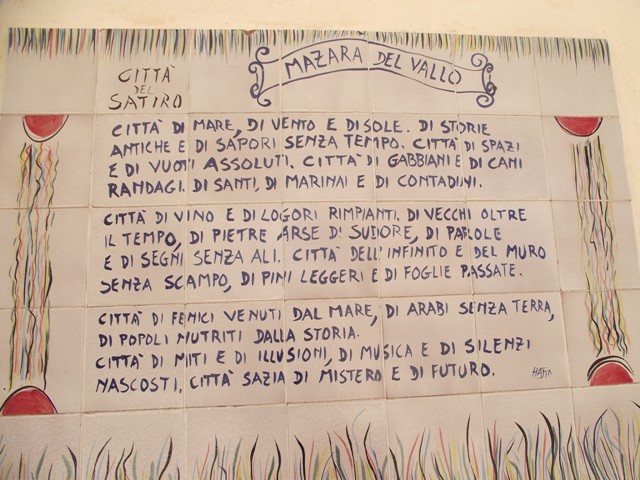 MAZARA DEL VALLO
CITTÀ
DEL
SATIRO
CITTÀ DI MARE, DI VENTO E DI SOLE. DI STORIE
ANTICHE E DI SAPORI SENZA TEMPO. CITTÀ DI SPAZI
E DI VUOTI ASSOLUTI. CITTÀ DI GABBIANI E DI CANI
RANDAGI. DI SANTI, DI MARINAI E DI CONTADINI.
CITTÀ DI VINO E DI LOGORI RIMPIANTI. DI VECCHI OLTRE
IL TEMPO, DI PIETRE ARSE DI SUDORE, DI PAROLE
E DI SEGNI SENZA ALI. CITTÀ DELL'INFINITO E DEL MURO
SENZA SCAMPO, DI PINI LEGGERI E DI FOGLIE PASSATE.
CITTÀ DI FENICI VENUTI DAL MARE, DI ARABI SENZA TERRA,
DI POPOLI NUTRITI DALLA STORIA.
CITTÀ DI MITI E DI ILLUSIONI, DI MUSICA E DI SILENZI
NASCOSTI. CITTÀ SAZIA DI MISTERO E DI FUTURO.